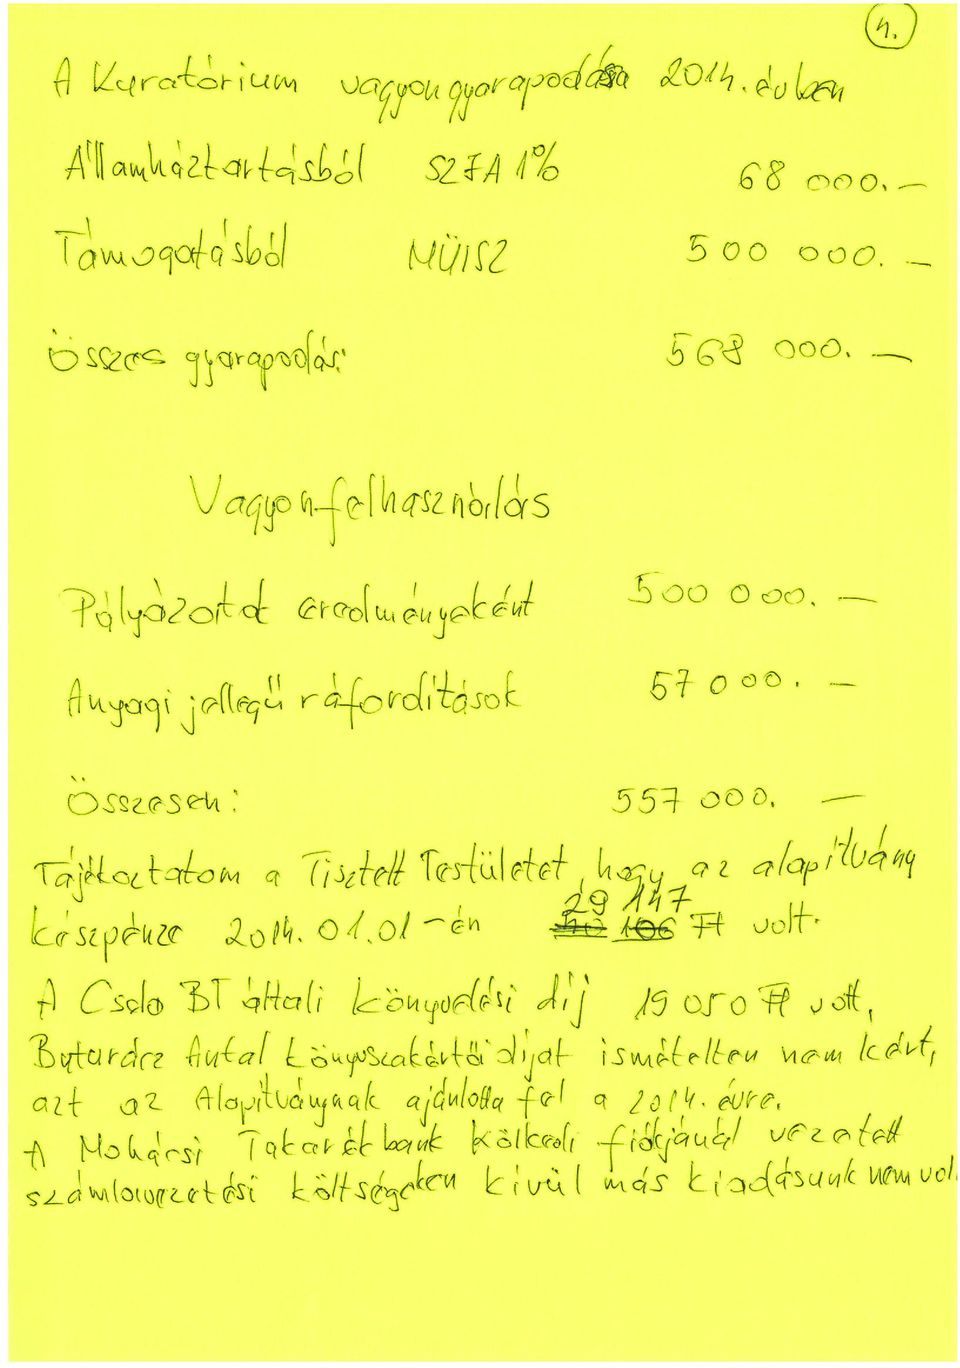 4.
A Kuratórium vagyongyarapodása 2014. évben
Államháztartásból SZJA 1% 68 000.—
Támogatásból MÜISZ 500 000.—
Összes gyarapodás: 568 000.—
Vagyonfelhasználás
Pályázatok eredményeként 500 000.—
Anyagi jellegű ráfordítások 57 000.—
Összesen: 557 000.—
Tájékoztatom a Tisztelt Testületet, hogy az alapítvány
29 147
készpénze 2014.01.01-én Ft volt.
A BT általi könyvelési díj 19 050 Ft volt,
Antal könyvszakértői díjat ismételten nem kért,
azt az Alapítványnak ajánlotta fel a 2014. évre.
A Mohácsi Takarék bank Kölkedi fiókjánál vezetett
számlavezetési költségeken kívül más kiadásunk nem volt.